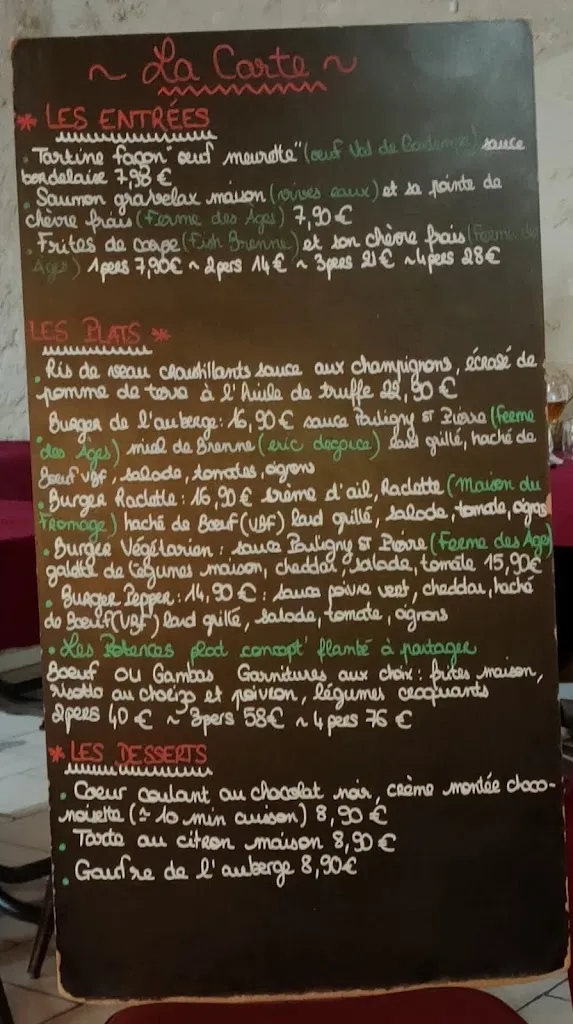 ~ La Carte ~
* LES ENTRÉES
• Tartine façon "oeuf meurette" (oeuf Val de ) sauce
bordelaise 7,90 €
• Saumon gravelax maison (vives eaux) et sa pointe de
chèvre frais (Ferme des Ages) 7,90 €
• Frites de carpe (Fish Brenne) et son chèvre frais (Ferme des
Ages) 1pers 7,90€ ~ 2pers 14€ ~ 3pers 21€ ~ 4pers 28€
LES PLATS *
• Ris de veau croustillants sauce aux champignons, écrasé de
pomme de terre à l'huile de truffe 22,90 €
• Burger de l'auberge: 16,90€ sauce Pouligny St Pierre (Ferme
des Ages) miel de Brenne (eric degouce) lard grillé, haché de
Boeuf VBF, salade, tomates, oignons
• Burger Raclette: 16,90€ crème d'ail, Raclette (Maison du
Fromage) haché de Boeuf (VBF) lard grillé, salade, tomate, oignons
• Burger Végétarien: sauce Pouligny St Pierre (Ferme des Ages)
galette de légumes maison, cheddar, salade, tomate 15,90€
• Burger Pepper: 14,90€: sauce poivre vert, cheddar, haché
de Boeuf (VBF) lard grillé, salade, tomate, oignons
• Les Potences plat concept' flambé à partager
Boeuf OU Gambas Garnitures aux choix: frites maison,
risotto au chorizo et poivron, légumes croquants
2pers 40€ ~ 3pers 58€ ~ 4pers 76€
* LES DESSERTS
• Coeur coulant au chocolat noir, crème montée choco-
noisette (≃ 10 min cuisson) 8,90€
• Tarte au citron maison 8,90€
• Gaufre de l'auberge 8,90€